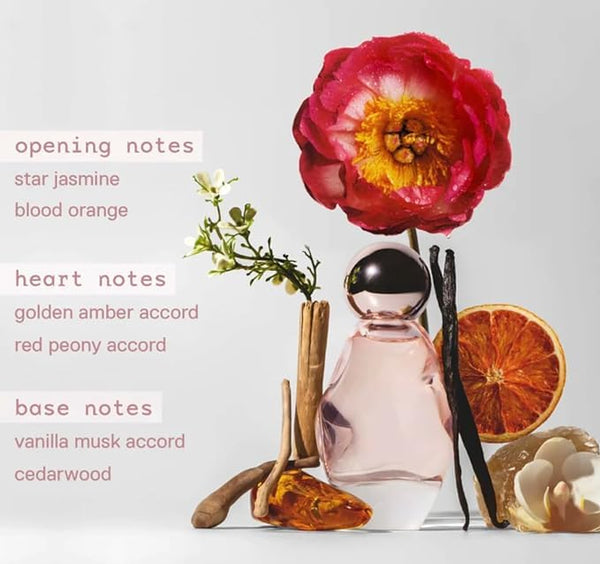 opening notes
star jasmine
blood orange
heart notes
golden amber accord
red peony accord
base notes
vanilla musk accord
cedarwood